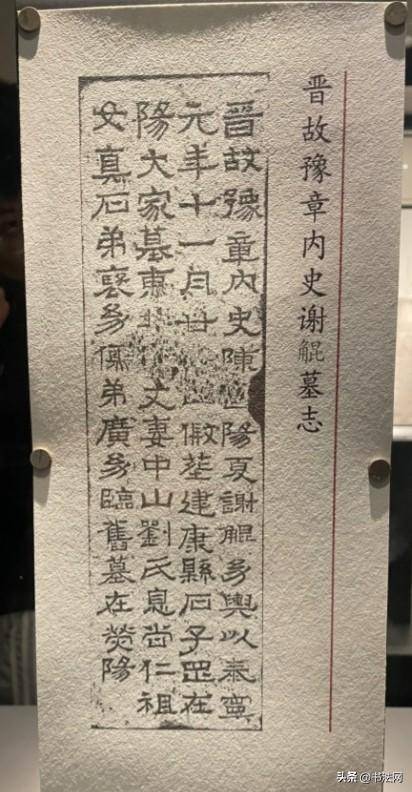 晋故豫章内史谢鲲墓志
晉故豫章内史陳陽夏謝鯤幼輿以泰寧
元年十一月廿假葬建康縣石子罡在
陽大家墓東北丈妻中山劉氏息尚仁祖
女真石弟裒幼儒弟廣幼臨舊墓在熒陽
头条 @书法网